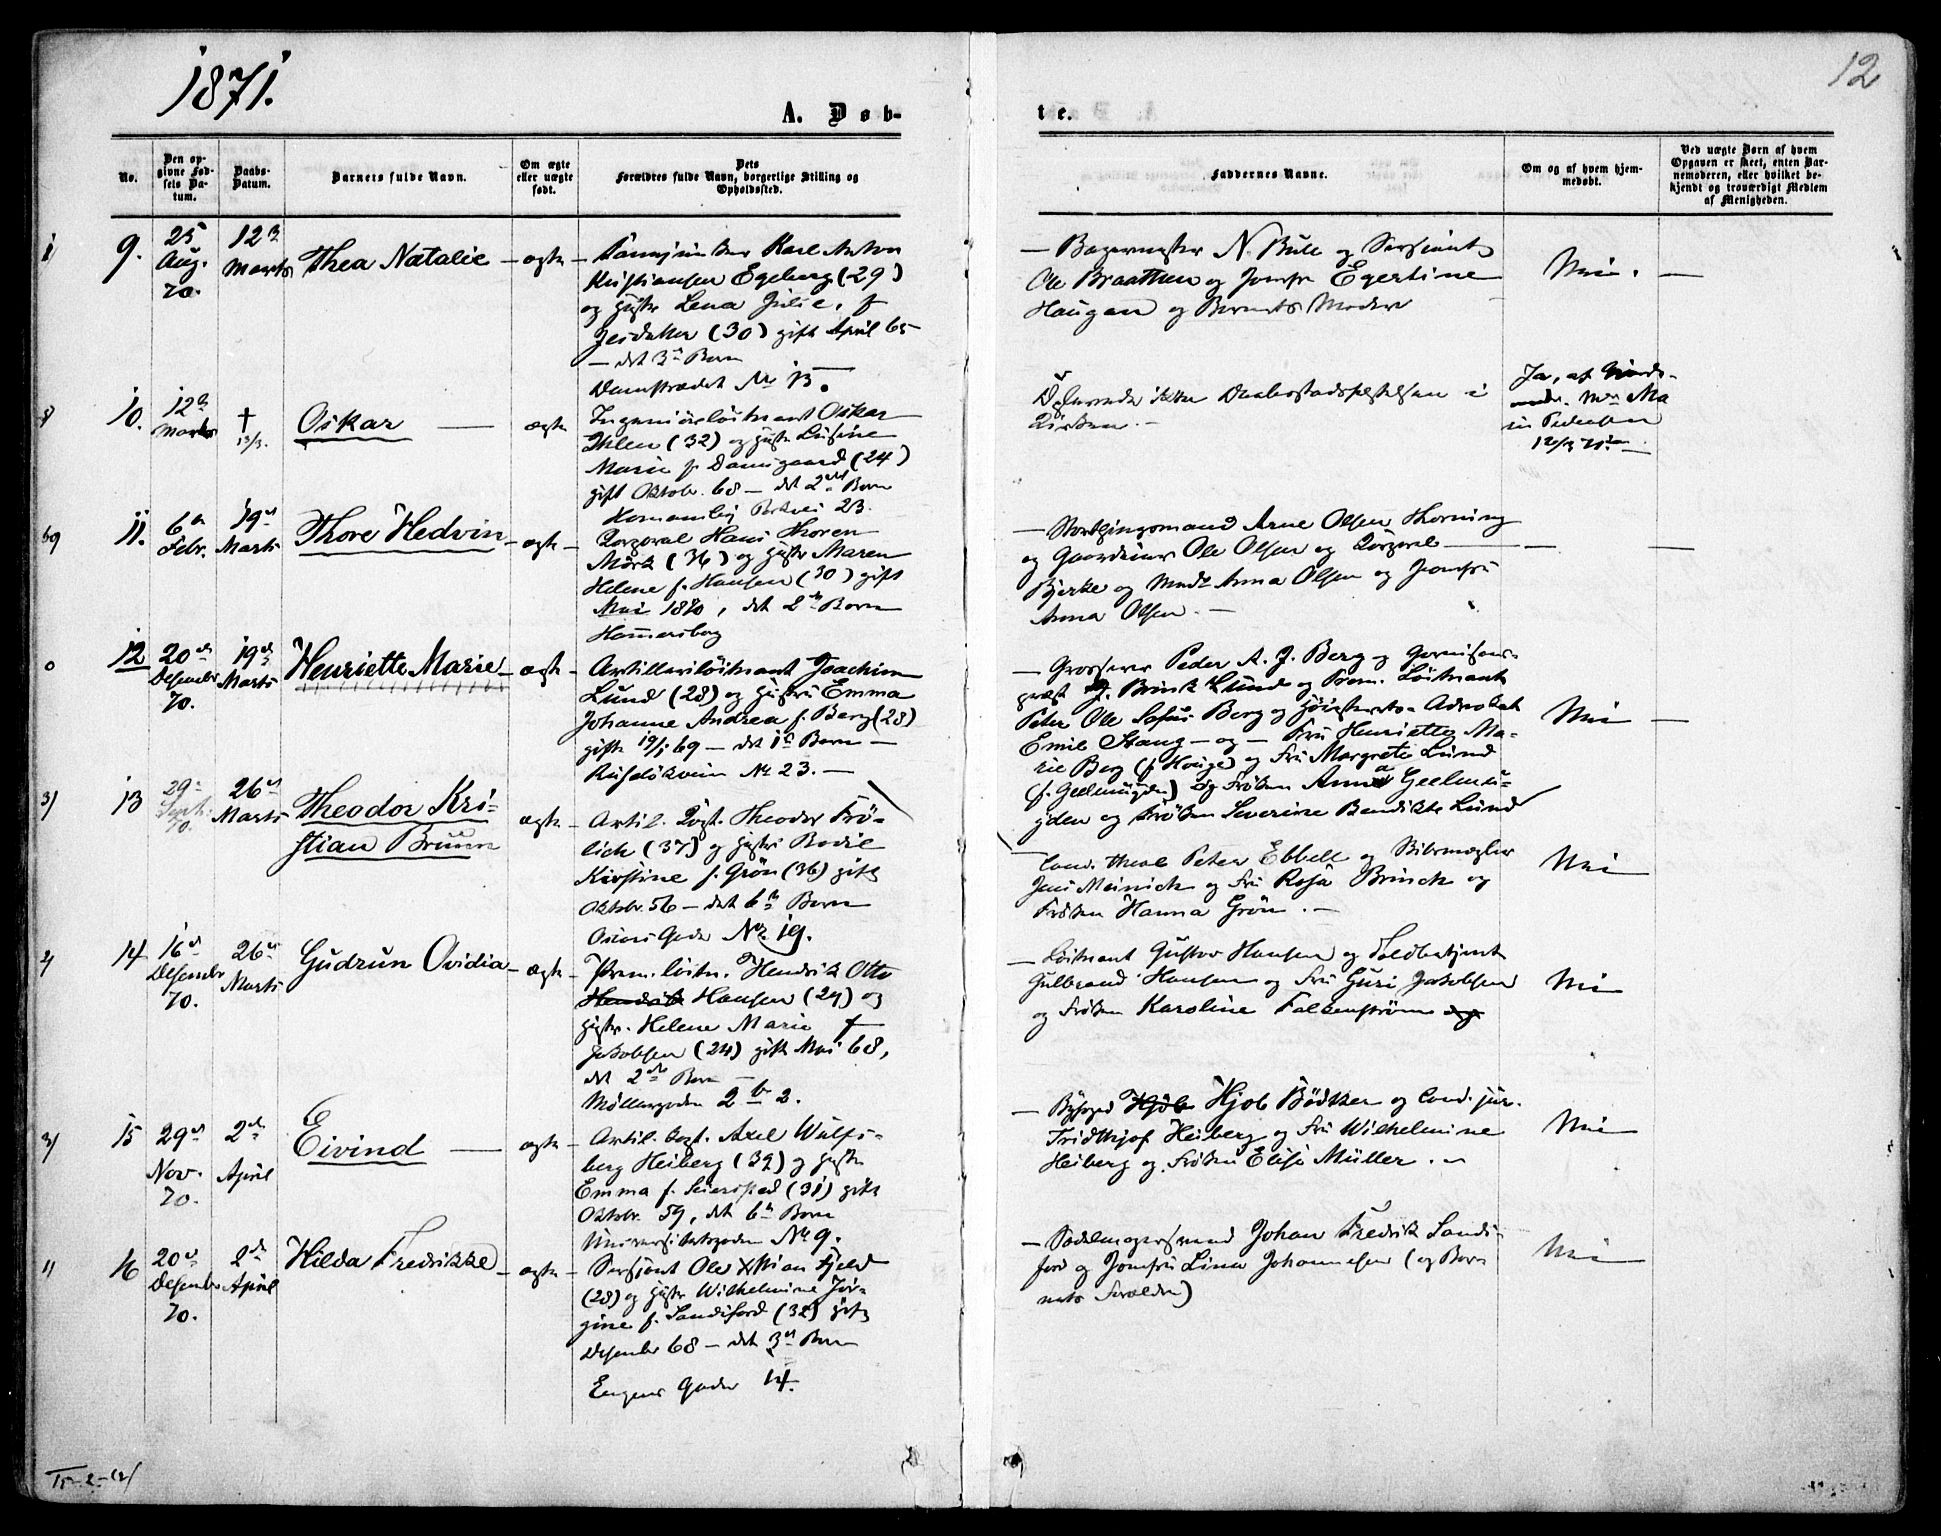 1871.
12
A. Døb-
te.
No.
Den op-
givne Fød-
sels Da-
tum.
Daabs-
Datum.
Barnets fulde Navn.
Om ægte
eller uægte
født.
Dets
Forældres fulde Navn, borgerlige Stilling og
Opholdssted.
Faddernes Navne.
Om og af hvem hjem-
medøbt.
Ved uægte Børn af hvem
Opgaven er skeet, enten Bar-
nemoderen, eller hvilket be-
kjendt og troværdigt Medlem
af Menigheden.
9.
25
Aug.
70.
12
Marts
Thea Natalie – ægte –
Karl Anton
Kristiansen Egeberg (29)
og Hustr. Lena Julie, f.
(30) gift April 65
– det 3 Barn
Damstrædet No 13.
– Bagermester N. Bull og Sersjant
Ole Braathen og Jomfr Egertine
Haugan og Barnets Moder
Nei. –
10.
12
Marts
†
13/3.
Oskar –
ægte
Ingeniørløitnant Oskar
Ihlen (32) og Hustr. Lusine
Marie f. Damgaard (24)
gift Oktobr. 68 – det 2 Barn
Parkvei 23.
Døde inden Daabsstadfæstelsen i
Kirken. –
Ja, af
Ma
Pedersen
12/3 71
11.
6
Febr.
19
Marts
Thore Hedvin – ægte –
Korporal Hans Thoren
Mörk (36) og Hustr Maren
Helene f. Hansen (30) gift
Mai 1870, det 2 Barn
Hammersborg
– Storthingsmand Arne Olsen Thorning
og Gaardeier Ole Olsen og Korporal – – –
Bjerke og Mad. Anna Olsen og Jomfru
Anna Olsen. –
12
20
Desember
70.
19
Marts
Henriette Marie – ægte –
Artilleriløitnant Joachim
Lund (28) og Hustru Emma
Johanne Andrea f. Berg (28)
gifte 19/1 69 – det 1 Barn –
Rusløkveien No 23. –
– Grosserer Peder A. J. Berg og Garnisons-
præst J. Brink Lund og Prem. Löitnant
Peter Ole Sofus Berg og Høiesterets-Advokat
Emil Stang – og – Fru Henriette Ma-
rie Berg (f. Hauge) og Fru Margrete Lund
(f. Geelmuyden) og Frøken Anna Geelmu-
yden og Frøken Severine Bendikte Lund
Nei –
13
29
Sept.
70.
26
Marts
Theodor Kri-
stian Bruun
ægte –
Artil. Kapt. Theodor Frö-
lich (37) og Hustr. Bodil
Kirstine f. Grön (36) gift
Oktobr. 56 – det 6 Barn
Oscars Gade No. 19.
Cand. theol Peter Ebbell og
Jens Meinich og Fru Rosa Brinch og
Frøken Hanna Grön. –
Nei
14
16
Desember
70.
26
Marts
Gudrun Ovidia – ægte –
Prem. löitn. Hendrik Otto
Hendrik Hansen (29) og
Hustr. Helene Marie f.
Jakobsen (24) gift Mai 68,
det 2 Barn –
Møllergaden 2 b 2.
– Löitnant Gustav Hansen og Toldbetjent
Gulbrand Hansen og Fru Guri Jakobsen
og Frøken Karoline Falkenström og
Nei
15
29
Nov.
70.
2
April
Eivind –
ægte –
Artil. Kapt. Axel Wulfs-
berg Heiberg (39) og Hustr
Emma f. Seiersted (31) gift
Oktobr. 59, det 6 Barn
Universitetsgaden No 9.
– Byfoged Hjob Hjob Bödtker og Cand. jur.
Fridthjof Heiberg og Fru Wilhelmine
Heiberg og Frøken Elise Müller. –
Nei
16
20
Desember
70.
2
April
Hilda Fredrikke – ægte –
Sersjant Ole Kristian Fjeld
(28) og Hustr Wilhelmine Jör-
gine f. Sandiford (32) gift
Desember 68 – det 3 Barn
Eugenes Gade 14.
– Sadelmagersvend Johan Fredrik Sandi-
ford og Jomfru Lina Johannesen (og Bar-
nets Forældre)
Nei